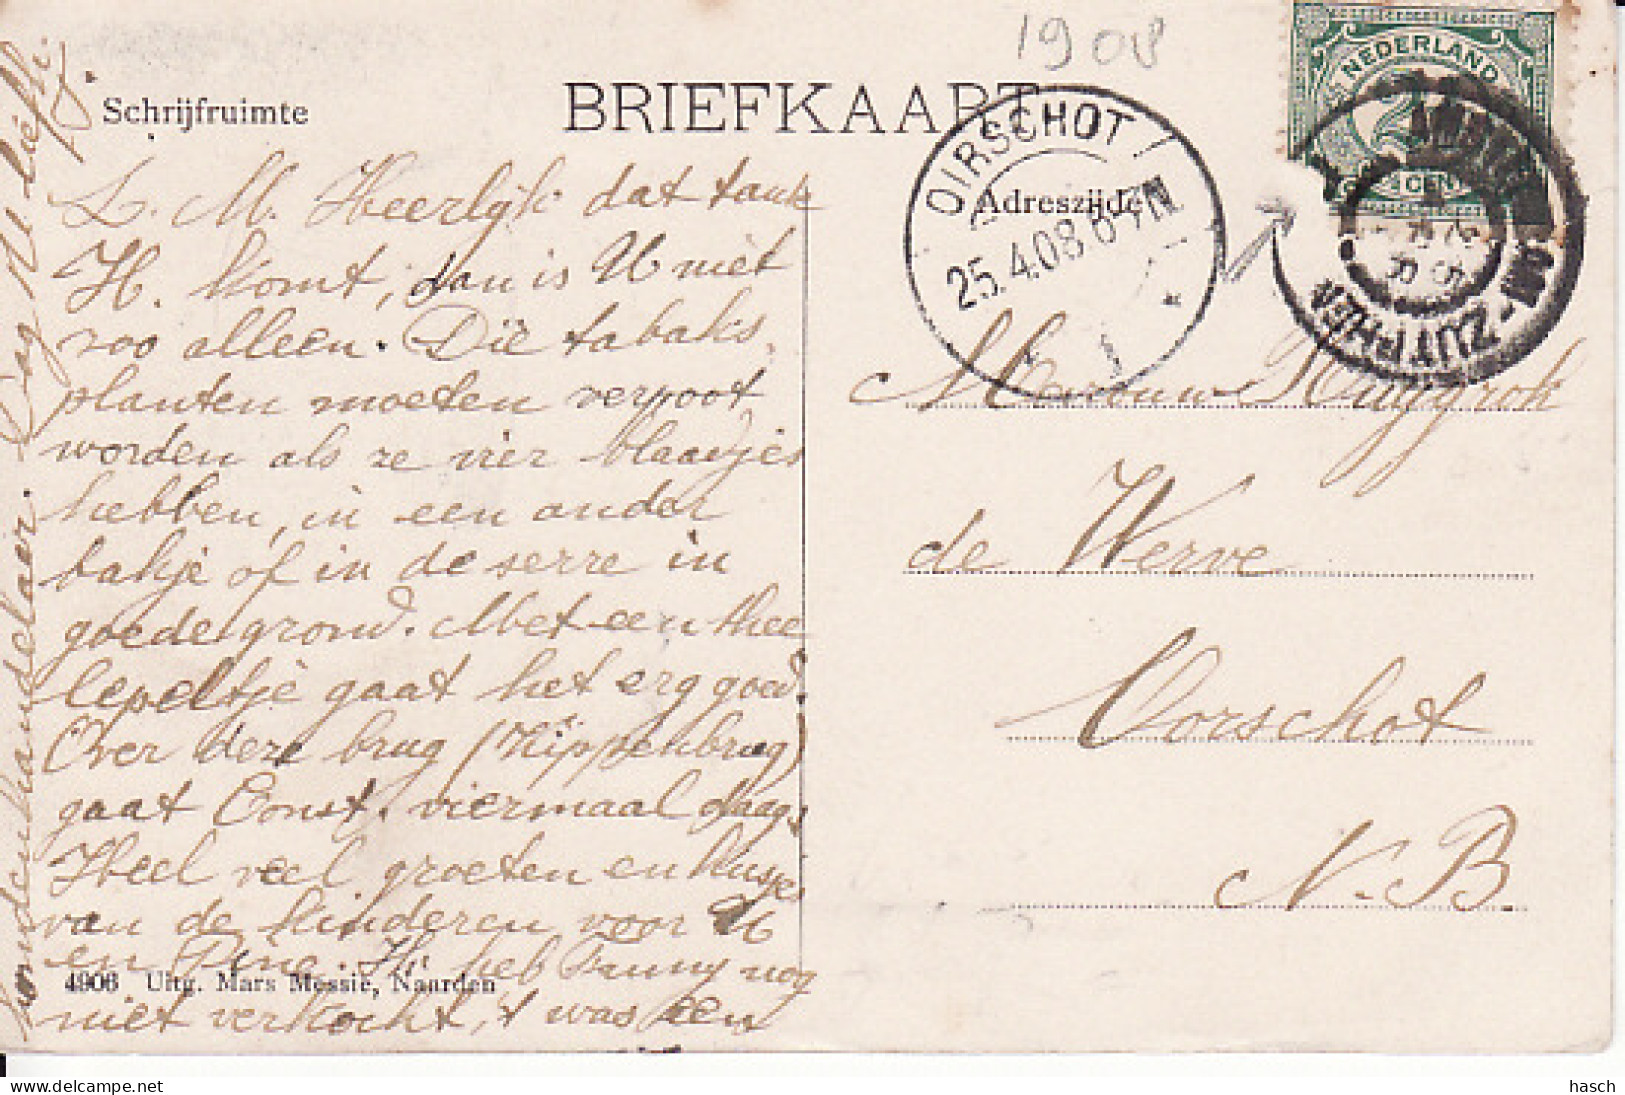 1908
Schrijfruimte
BRIEFKAART
Adreszijde
NEDERLAND
CENT
OIRSCHOT
25.4.08 6-7N
ZUTPHEN
L. M. Heerlijk dat tank
H. komt, dan is U niet
zoo alleen. Die tabaks
planten moeten verpoot
worden als ze vier blaadjes
hebben, in een ander
bakje of in de serre in
goede grond. Met een thee
lepeltje gaat het erg goed.
Over deze brug (Kippenbrug)
gaat Const. viermaal daags
Heel veel groeten en kusjes
van de kinderen voor U
en Tine. Ik heb Fanny nog
niet verkocht, 't was een
hondenhandelaer. Dag U liefh.
4906 Uitg. Mars Messie, Naarden
Mevrouw Kuyggrok
de Werve
Oorschot
N.-B.
delcampe.net
hasch